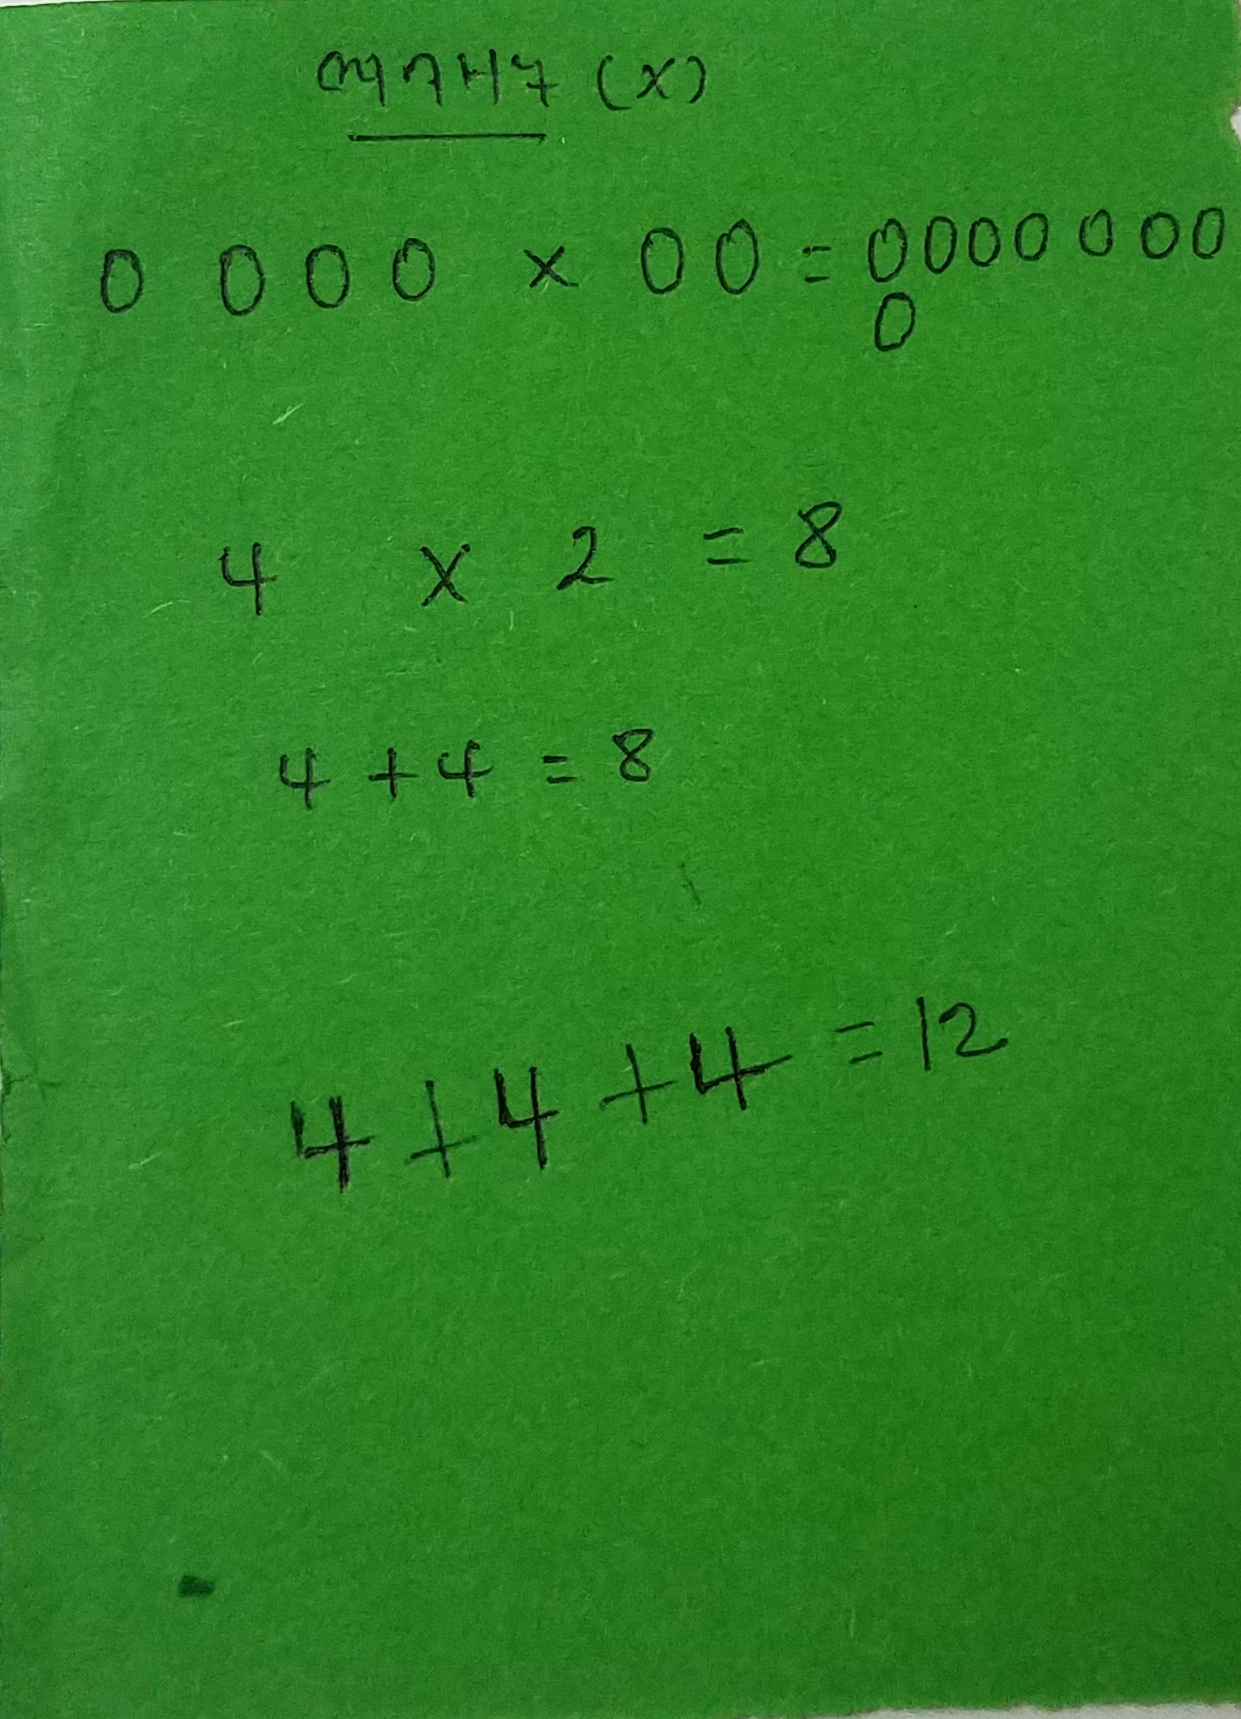 ማባዛት (x)
0 0 0 0 x 0 0 = 0 0 0 0 0 0 0
0
4 x 2 = 8
4 + 4 = 8
4 + 4 + 4 = 12